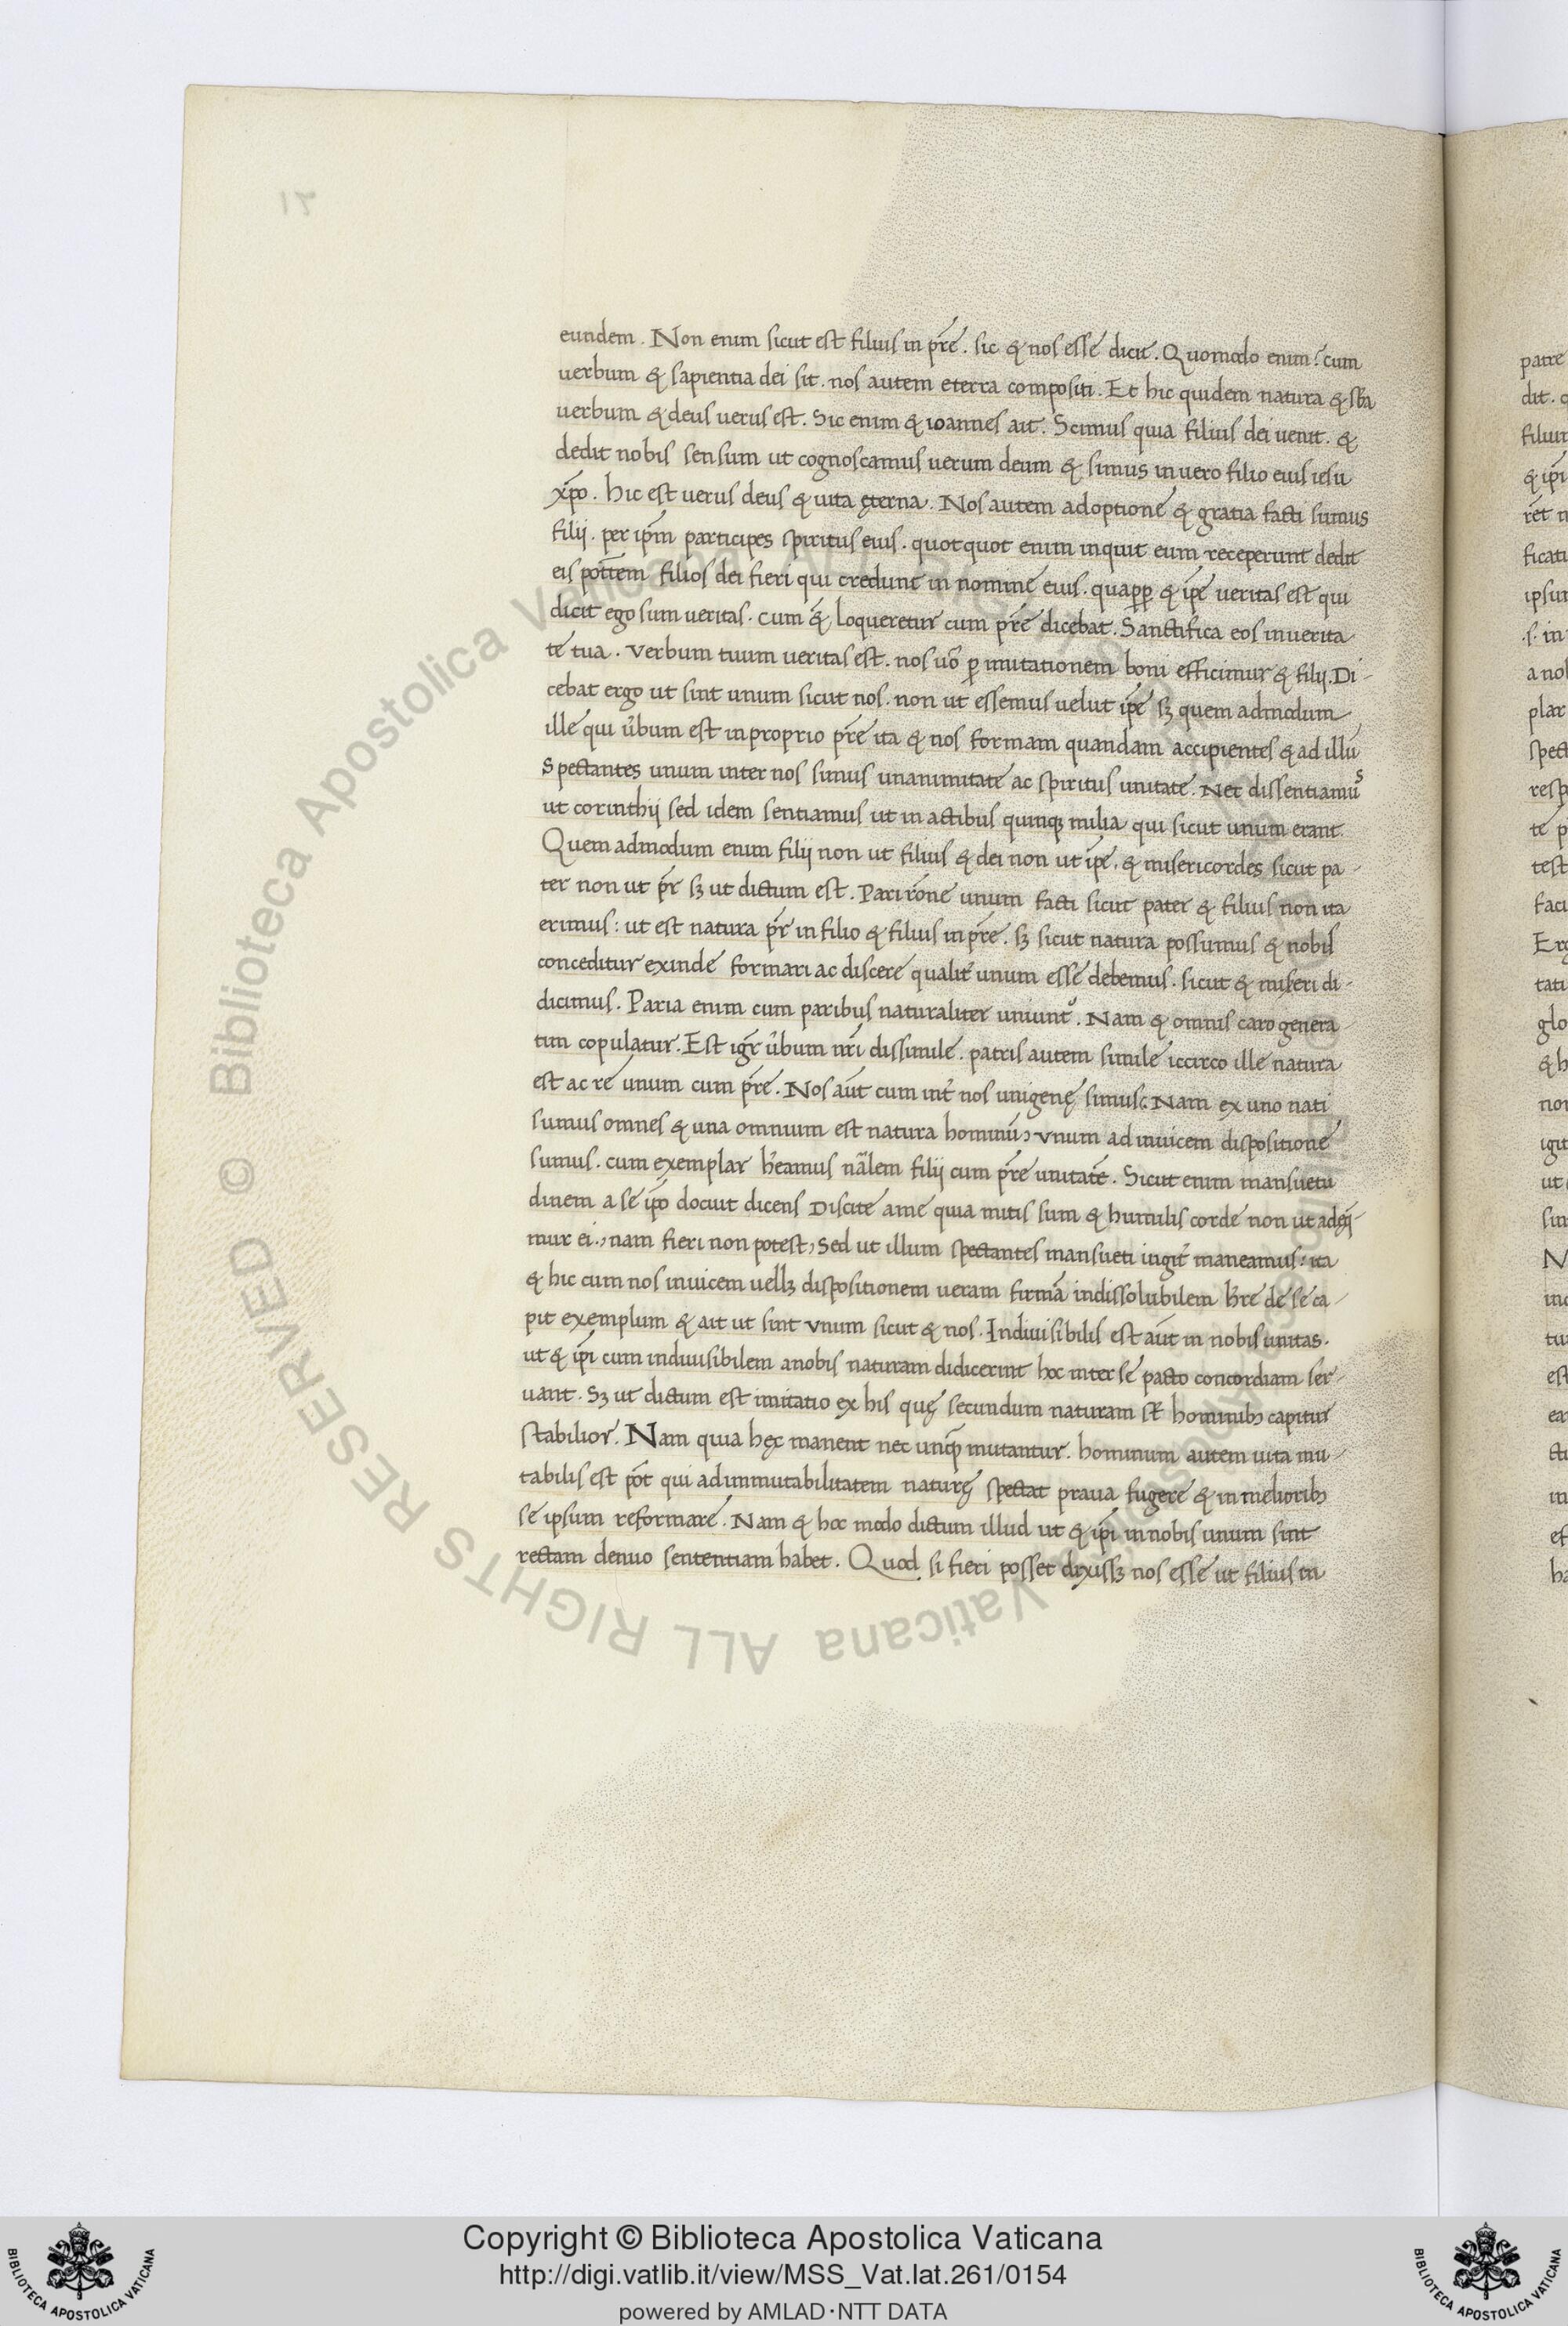 eundem. Non enim sicut est filius in pr̄e. sic & nos esse dicit. Quomodo enim? cum
uerbum & sapientia dei sit. nos autem eterra compositi. Et hic quidem natura & sb̄a
uerbum & deus uerus est. Sic enim & ioannes ait. Scimus quia filius dei uenit. &
dedit nobis sensum ut cognoscamus uerum deum & simus in uero filio eius iesu
xp̄o. hic est uerus deus & uita ęterna. Nos autem adoptione & gratia facti sumus
filij. per ip̄m participes spiritus eius. quotquot enim inquit eum receperunt dedit
eis pott̄em filios dei fieri qui credunt in nomine eius. quapp̄ & ip̄e ueritas est qui
dicit ego sum ueritas. cum & loqueretur cum pr̄e dicebat. Sanctifica eos in uerita
te tua. Verbum tuum ueritas est. nos uō ꝑ imitationem boni efficimur & filij. Di-
cebat ergo ut sint unum sicut nos. non ut essemus uelut ip̄e sꝫ quem admodum
ille qui u̓bum est in proprio pr̄e ita & nos formam quandam accipientes & ad illū
spectantes unum inter nos simus unanimitate ac spiritus unitate. Nec dissentiamus
ut corinthij sed idem sentiamus ut in actibus quinqꝫ milia qui sicut unum erant.
Quem admodum enim filij non ut filius & dei non ut ip̄e. & misericordes sicut pa-
ter non ut pr̄ sꝫ ut dictum est. Pari rōne unum facti sicut pater & filius non ita
erimus: ut est natura pr̄ in filio & filius in pr̄e. sꝫ sicut natura possumus & nobis
conceditur exinde formari ac discere qualit̓ unum esse debemus. sicut & miseri di-
dicimus. Paria enim cum paribus naturaliter uniunt᷑. Nam & omnis caro genera-
tim copulatur. Est igr̄ u̓bum nr̄i dissimile. patris autem simile iccirco ille natura
est ac re unum cum pr̄e. Nos aūt cum int̓ nos unigenę simus: Nam ex uno nati
sumus omnes & una omnium est natura hominū, Vnum ad inuicem dispositione
sumus. cum exemplar h̓eamus nālem filij cum pr̄e unitatē. Sicut enim mansuetu
dinem a se ip̄o docuit dicens Discite a me quia mitis sum & humilis corde non ut adeq̄-
mur ei., nam fieri non potest, Sed ut illum spectantes mansueti iugit̓ maneamus: ita
& hic cum nos inuicem uellꝫ dispositionem ueram firmā indissolubilem h̓re de se ca-
pit exemplum & ait ut sint Vnum sicut & nos. Indiuisibilis est aūt in nobis unitas.
ut & ip̄i cum indiuisibilem a nobis naturam didicerint hoc inter se pacto concordiam ser-
uant. Sꝫ ut dictum est imitatio ex his quę secundum naturam st̄ hominibꝫ capitur
stabilior. Nam quia hęc manent nec unq̄ mutantur. hominum autem uita mu-
tabilis est pōt qui ad immutabilitatem naturę spectat praua fugere & in melioribꝫ
se ipsum reformare. Nam & hoc modo dictum illud ut & ip̄i in nobis unum sint
rectam denuo sententiam habet. Quod si fieri posset dixissꝫ nos esse ut filius in
© Biblioteca Apostolica Vaticana ALL RIGHTS RESERVED
Copyright © Biblioteca Apostolica Vaticana
http://digi.vatlib.it/view/MSS_Vat.lat.261/0154
powered by AMLAD·NTT DATA
BIBLIOTECA APOSTOLICA VATICANA
BIBLIOTECA APOSTOLICA VATICANA